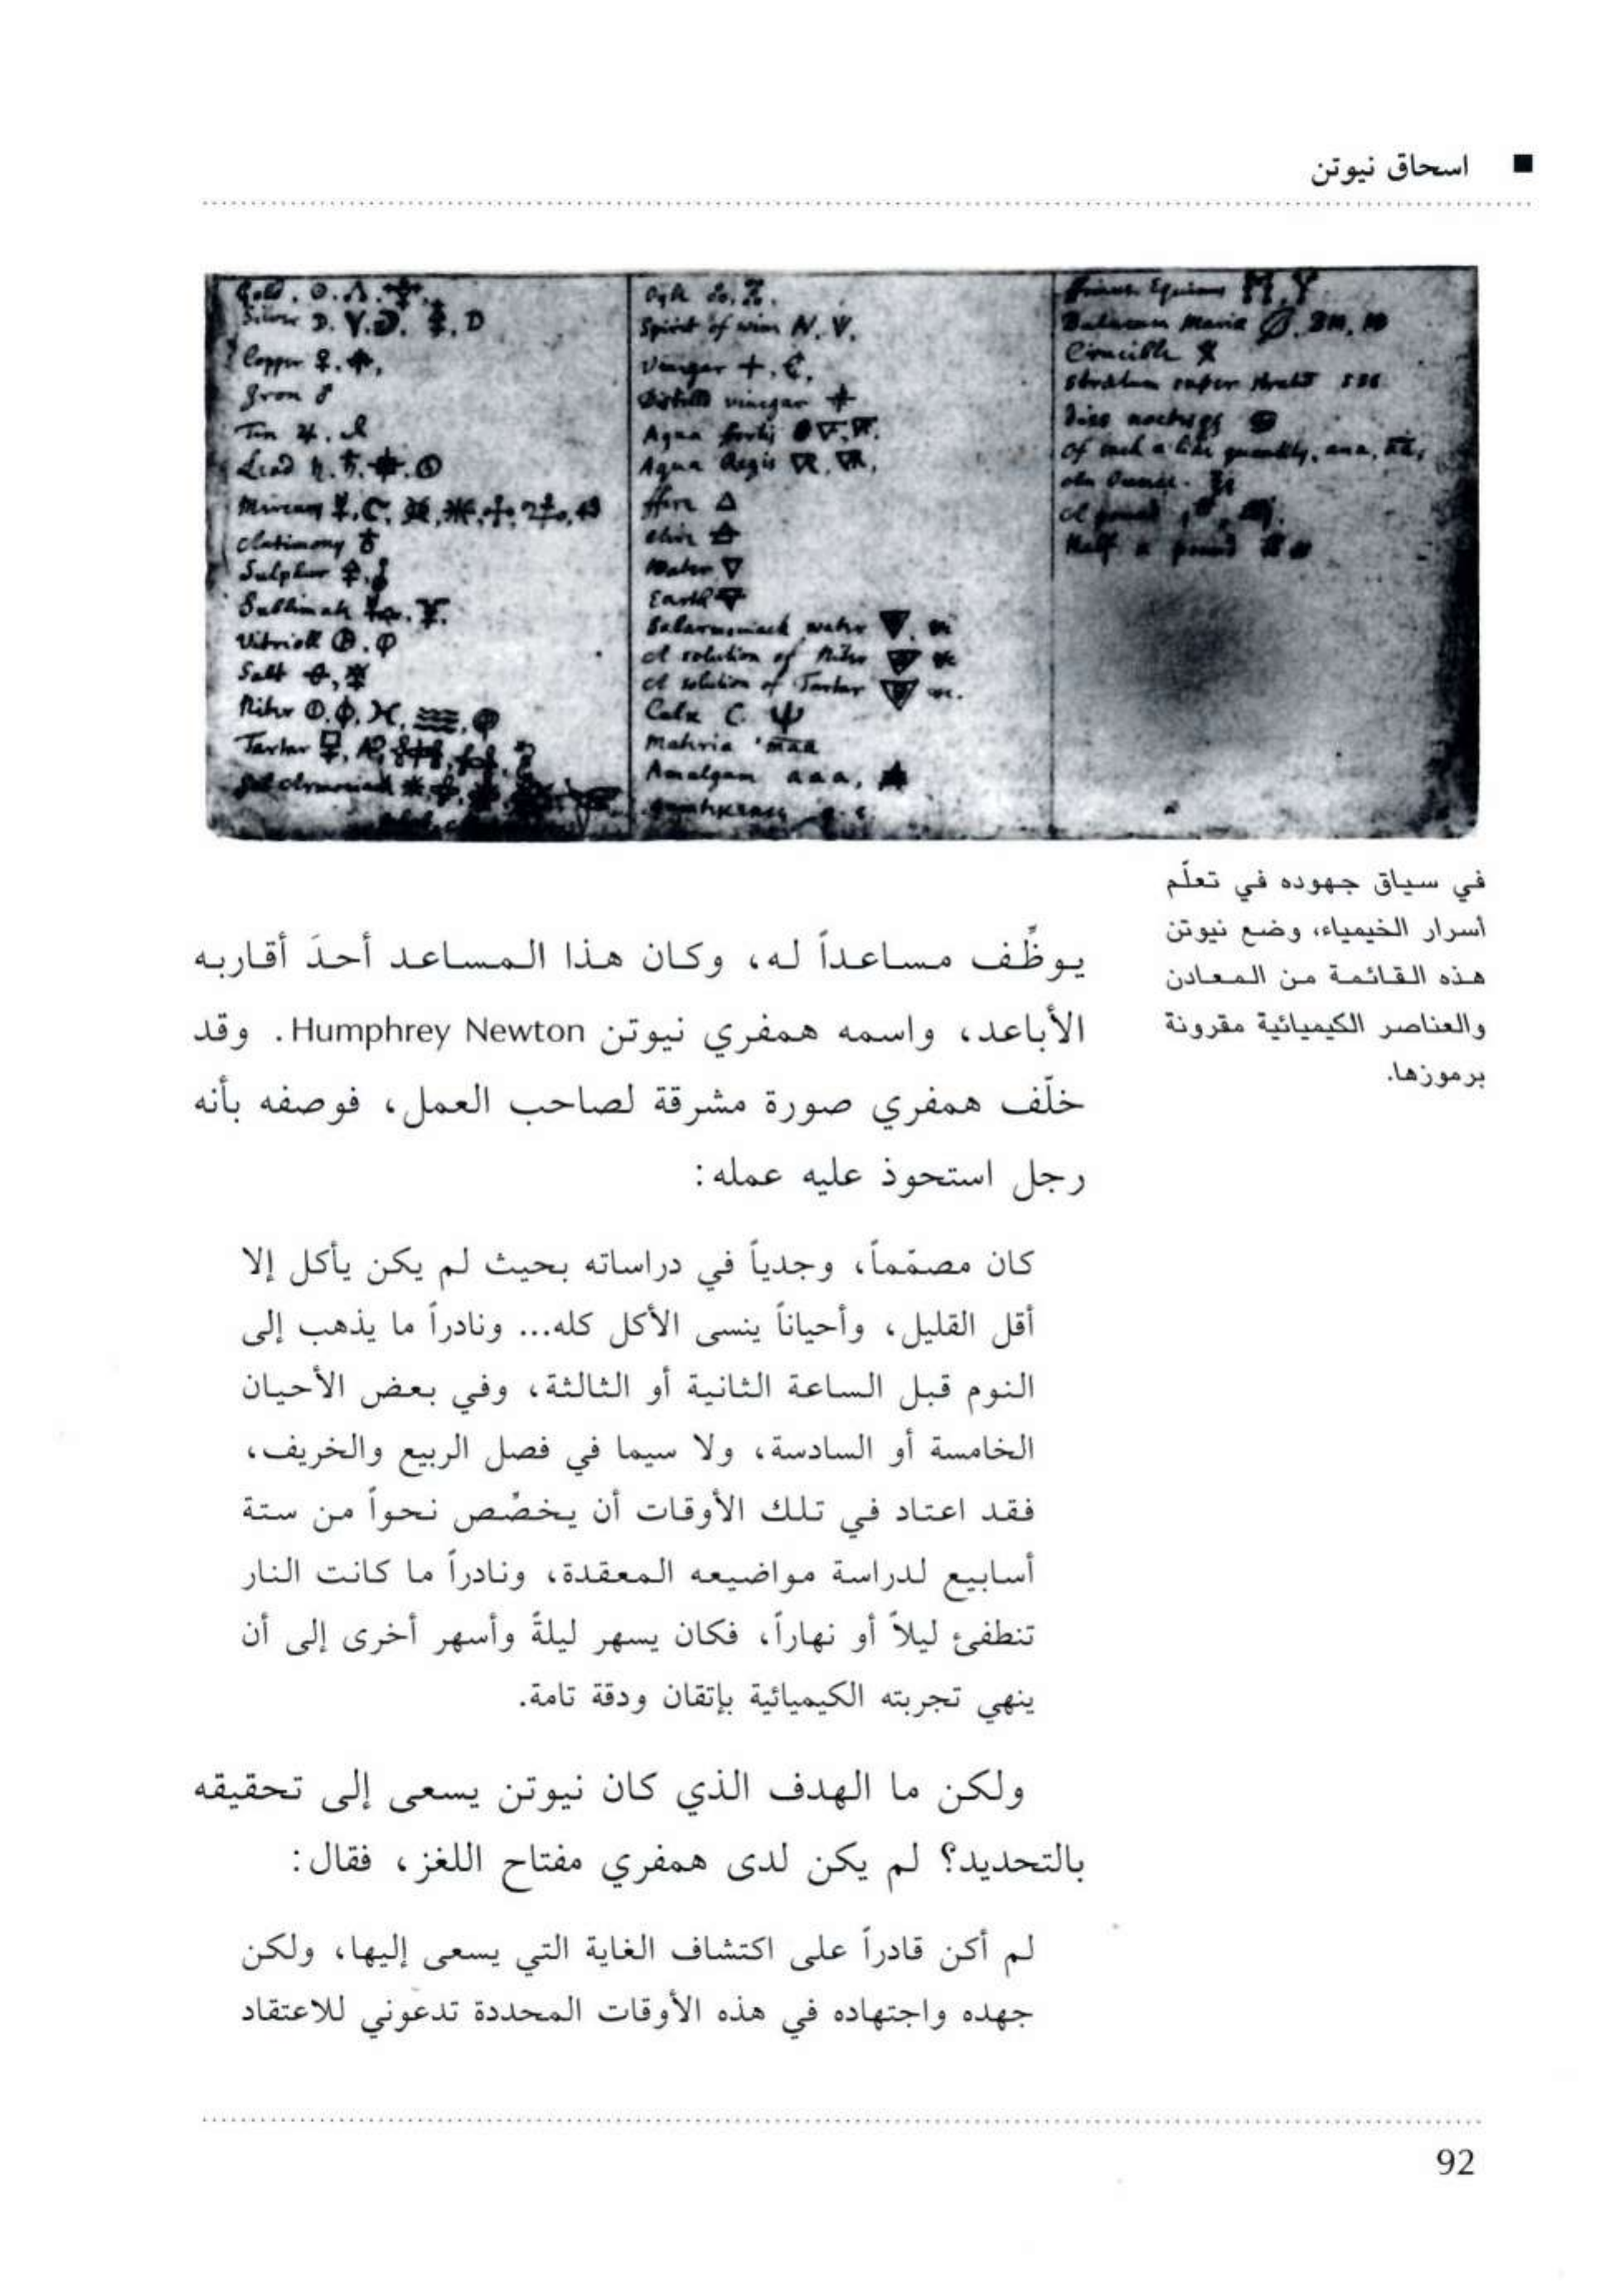 ■ اسحاق نيوتن
Gold
Silver
Copper
Iron ♂
Tin
Lead
Mercury
Antimony
Sulphur
Sublimate
Vitrioll
Salt
Niter
Tartar
Sal Armoniack
Oyle
Spirit of wine
Vinegar
Distilld vinegar
Aqua fortis
Aqua Regis
ffire △
Aire
Water ▽
Earth
Salarmoniack water
A solution of Niter
A solution of Tartar
Calx C.
Materia maa
Amalgam aaa,
Balneum Mariæ
Crucible
Stratum super stratū SSS
Of each a like quantity, ana,
An Ounce.
A pound
Half a pound
في سياق جهوده في تعلّم
أسرار الخيمياء، وضع نيوتن
هذه القائمة من المعادن
والعناصر الكيميائية مقرونة
برموزها.
يوظِّف مساعداً له، وكان هذا المساعد أحدَ أقاربه
الأباعد، واسمه همفري نيوتن Humphrey Newton. وقد
خلّف همفري صورة مشرقة لصاحب العمل، فوصفه بأنه
رجل استحوذ عليه عمله:
كان مصمّماً، وجدياً في دراساته بحيث لم يكن يأكل إلا
أقل القليل، وأحياناً ينسى الأكل كله... ونادراً ما يذهب إلى
النوم قبل الساعة الثانية أو الثالثة، وفي بعض الأحيان
الخامسة أو السادسة، ولا سيما في فصل الربيع والخريف،
فقد اعتاد في تلك الأوقات أن يخصِّص نحواً من ستة
أسابيع لدراسة مواضيعه المعقدة، ونادراً ما كانت النار
تنطفئ ليلاً أو نهاراً، فكان يسهر ليلةً وأسهر أخرى إلى أن
ينهي تجربته الكيميائية بإتقان ودقة تامة.
ولكن ما الهدف الذي كان نيوتن يسعى إلى تحقيقه
بالتحديد؟ لم يكن لدى همفري مفتاح اللغز، فقال:
لم أكن قادراً على اكتشاف الغاية التي يسعى إليها، ولكن
جهده واجتهاده في هذه الأوقات المحددة تدعوني للاعتقاد
92